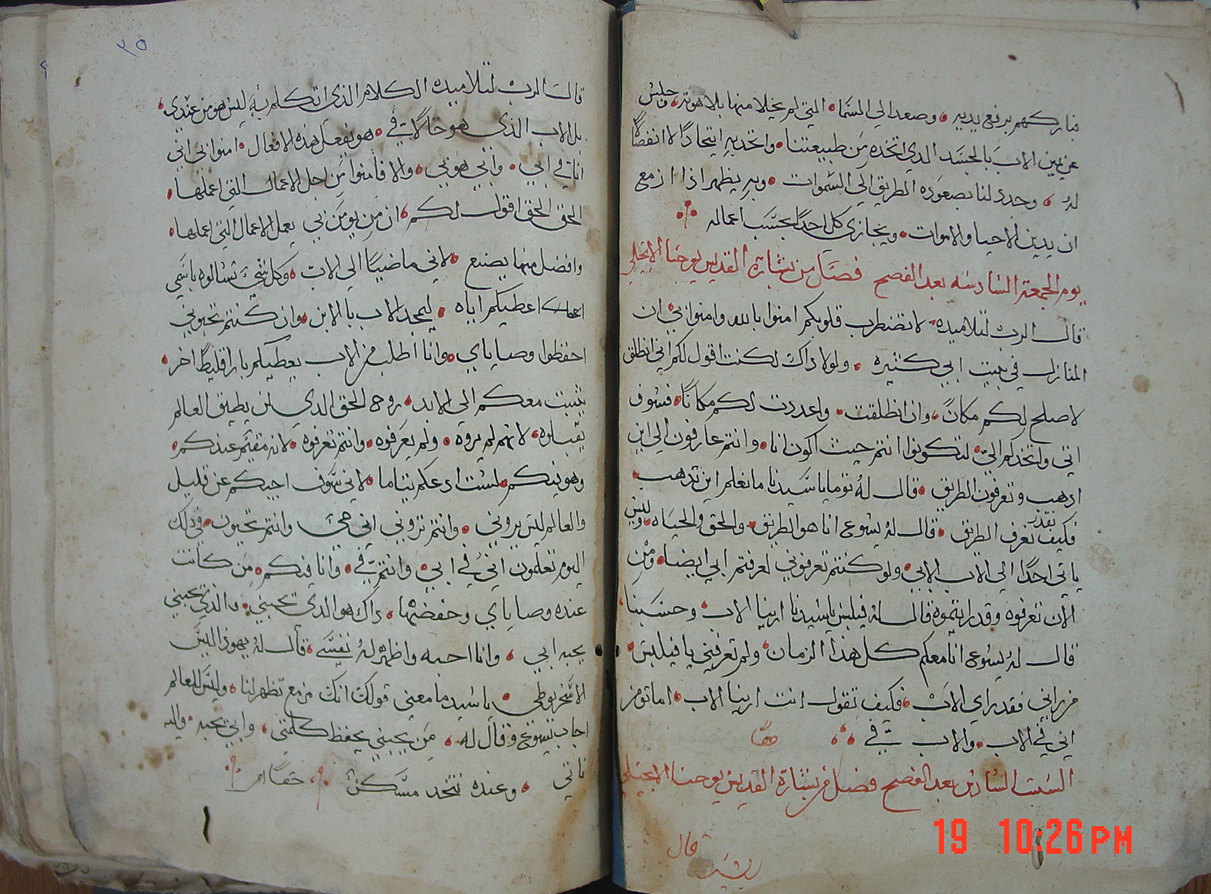 باركهم برفع يديه وصعد الي السما التي لم يخلا منها بلاهوته وجلس
عن يمين الاب بالجسد الذي اتخده من طبيعتنا واتحد به اتحادًا لا انفصال
له وجدد لنا بصعوده الطريق الي السموات وبه يظهر اذا ازمع
ان يدين الاحيا والاموات ويجازي كل احد بحسب اعماله
يوم الجمعة السادسه بعد الفصح فصل من بشارة القديس يوحنا الانجيلي
قال الرب لتلاميذه لا تضطرب قلوبكم امنوا بالله وامنوا بي ان
المنازل في بيت ابي كثيره ولولا ذاك لكنت اقول لكم اني انطلق
لاصلح لكم مكانًا وان انطلقت واعددت لكم مكانًا فسوف
اتي واخدكم الي لتكونوا انتم حيث اكون انا وانتم عارفون الي اين
ادهب وتعرفون الطريق قال له توما يا سيد ما نعلم اين تدهب
فكيف نقدر نعرف الطريق قال له يسوع انا هو الطريق والحق والحياه وليس
ياتي احدًا الي الاب الا بي ولو كنتم تعرفوني لعرفتم ابي ايضا ومن
الان تعرفوه وقد رايتموه قال له فيلبس يا سيد ارينا الاب وحسبنا
قال له يسوع انا معكم كل هذا الزمان ولم تعرفني يا فيلبس
من راني فقد راي الاب فكيف تقول انت ارينا الاب اما تومن
اني في الاب والاب في
السبت السادس بعد الفصح فصل من بشارة القديس يوحنا الانجيلي
قال
٢٥
قال الرب لتلاميذه الكلام الذي اتكلم به ليس هو من عندي
بل الاب الذي هو حالا في هو يفعل هذه الافعال امنوا بي اني
انا في ابي وابي هو بي والا فامنوا من اجل الاعمال التي اعملها
الحق الحق اقول لكم ان من يومن بي يعمل الاعمال التي اعملها
وافضل منها يصنع لاني ماضيًا الي الاب وكل شي تسالوه باسمي
اعطيكم اياه ليمجد الاب بالابن وان كنتم تحبوني
احفظوا وصاياي وانا اطلب من الاب يعطيكم بارقليطًا اخر
يثبت معكم الي الابد روح الحق الذي لن يطيق العالم
يقبله لانهم لم يروه ولم يعرفوه وانتم تعرفوه لانه مقيم عندكم
وهو فيكم لست ادعكم يتاما لاني سوف اجيكم عن قليل
والعالم ليس يروني وانتم تروني اني حي وانتم تحيون وفي ذلك
اليوم تعلمون اني في ابي وانتم في وانا فيكم من كانت
عنده وصاياي وحفضها ذاك هو الذي يحبني والذي يحبني
يحبه ابي وانا احبه واظهر له نفسي قال له يهودا ليس
الاسخريوطي يا سيد ما معني قولك انك مزمع تظهر لنا وليس للعالم
اجاب يسوع وقال له من يحبني يحفظ كلمتي وابي يحبه واليه
ناتي وعنده نتخد مسكن حقًا ام
19 10:26 PM